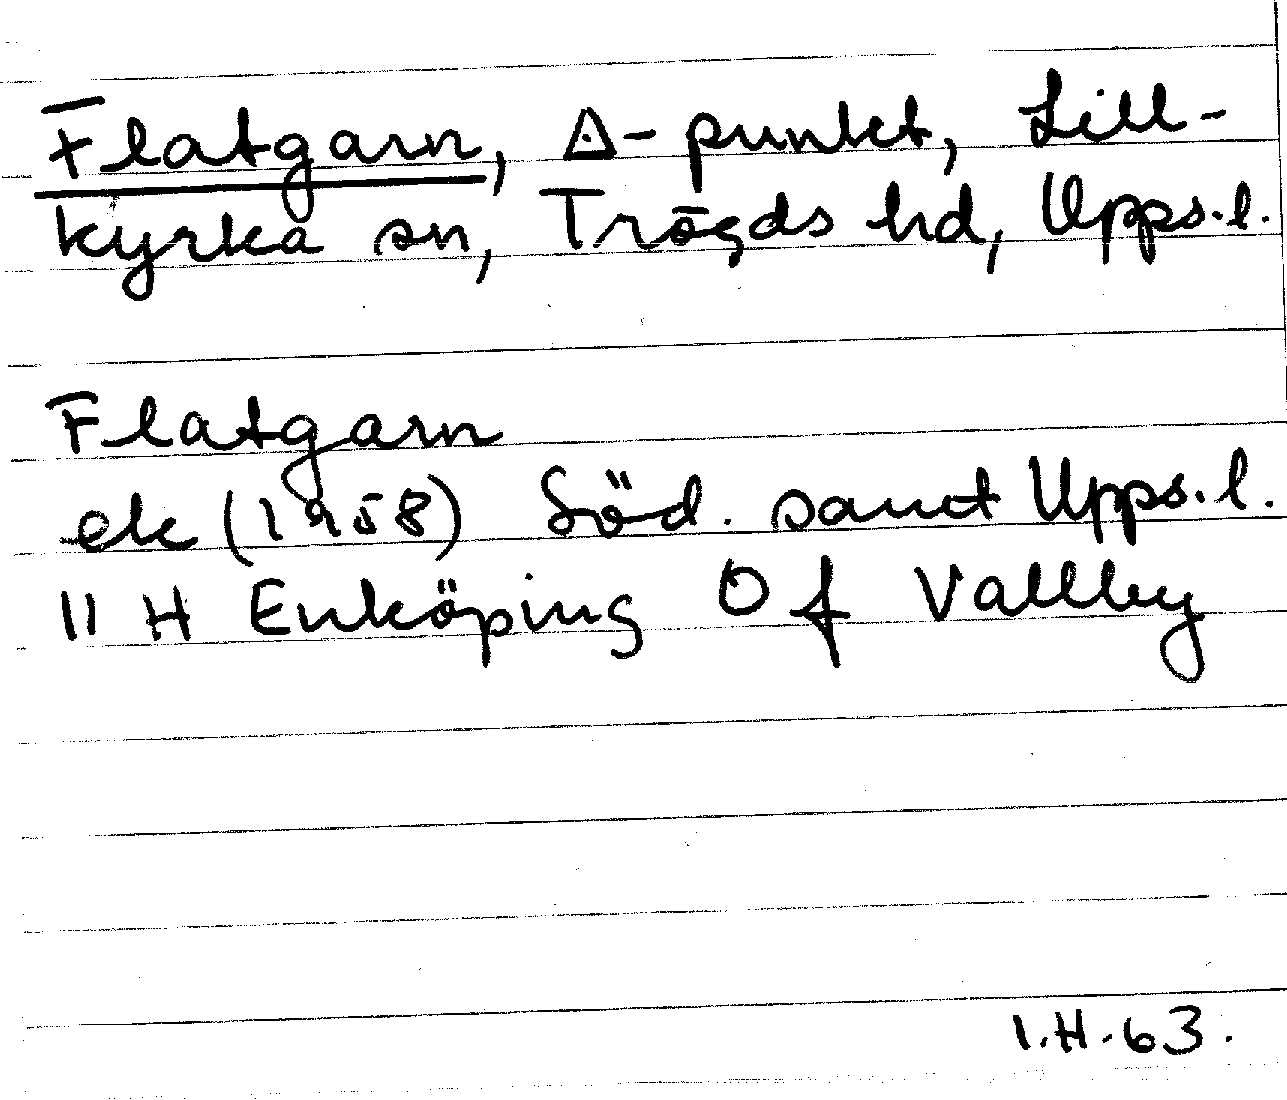 Flatgarn, △-punkt, Lill-
kyrka sn, Trögds hd, Upps.l.
Flatgarn
ek (1958) Söd. samt Upps.l.
11 H Enköping O f Vallby
I.H.63.